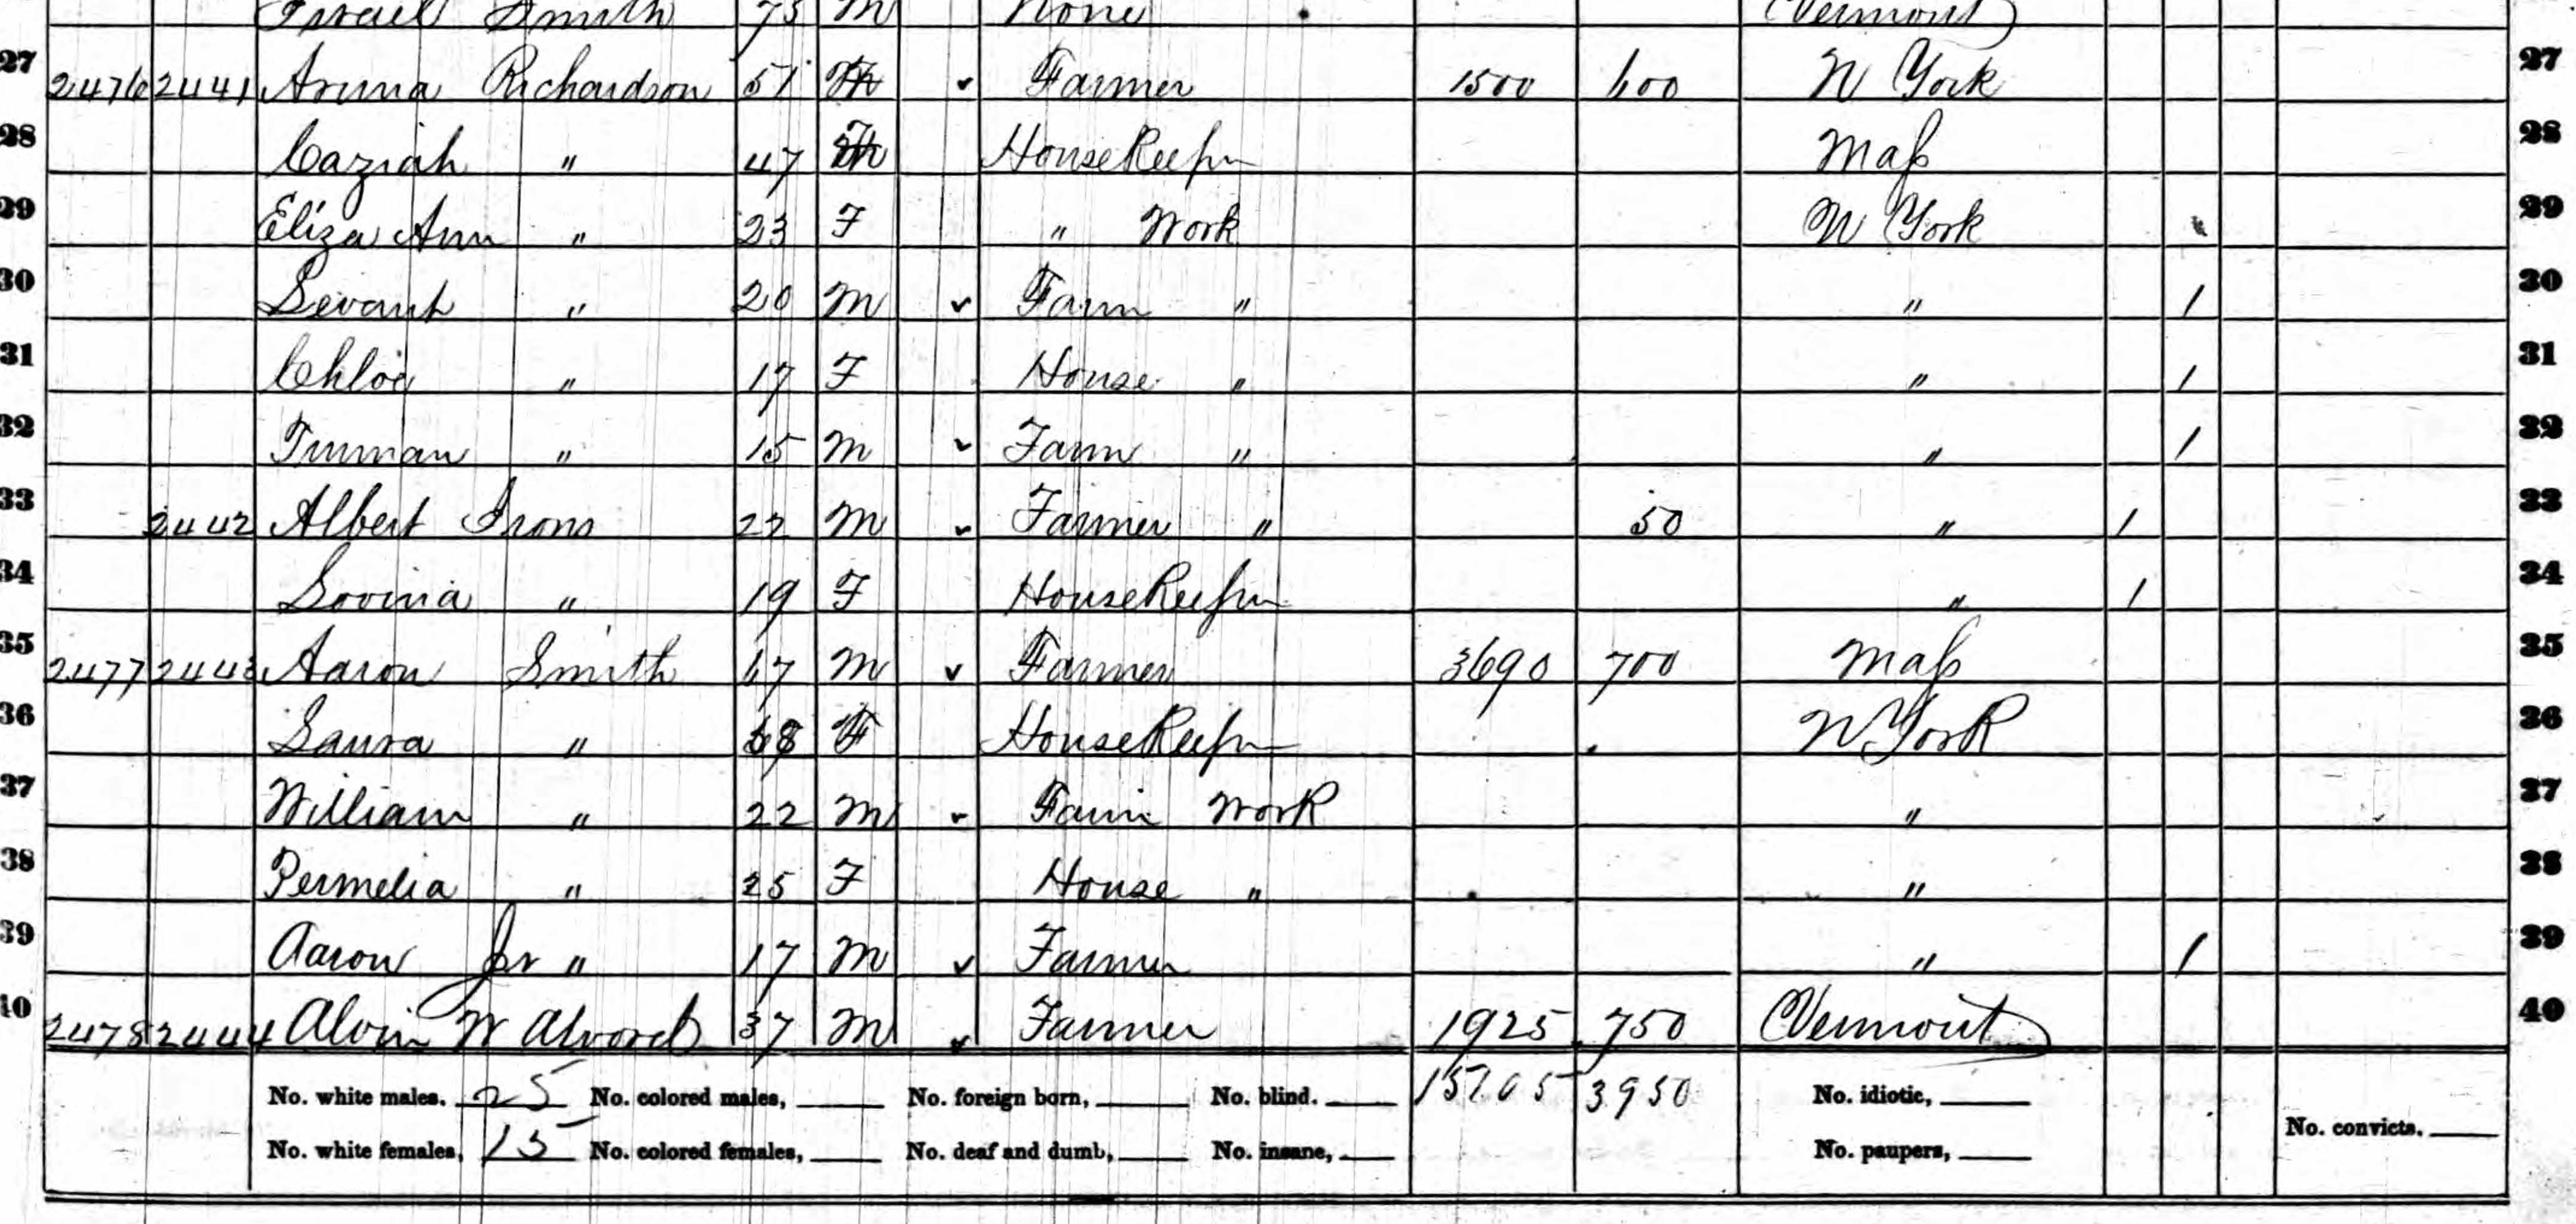 Israel Smith 75 M None Vermont
27 2476 2441 Aruna Richardson 51 M ✓ Farmer 1500 600 N York 27
28 Caziah " 47 F HouseKeeper Mass 28
29 Eliza Ann " 23 F " Work N York 29
30 Levant " 20 M ✓ Farm " " 1 30
31 Chloe " 17 F House " " 1 31
32 Truman " 15 M ✓ Farm " " 1 32
33 2442 Albert Irons 22 M ✓ Farmer " 50 " 1 33
34 Lovina " 19 F HouseKeeper " 1 34
35 2477 2443 Aaron Smith 67 M ✓ Farmer 3690 700 Mass 35
36 Laura " F HouseKeeper N York 36
37 William " 22 M ✓ Farm Work " 37
38 Permelia " 25 F House " " 38
39 Aaron Jr " 17 M ✓ Farmer " 1 39
40 2478 2444 Alvin W Alvord 37 M ✓ Farmer 1925 750 Vermont 40
No. white males, 25 No. colored males, No. foreign born, No. blind, 3950 No. idiotic,
No. white females, 15 No. colored females, No. deaf and dumb, No. insane, No. paupers, No. convicts,